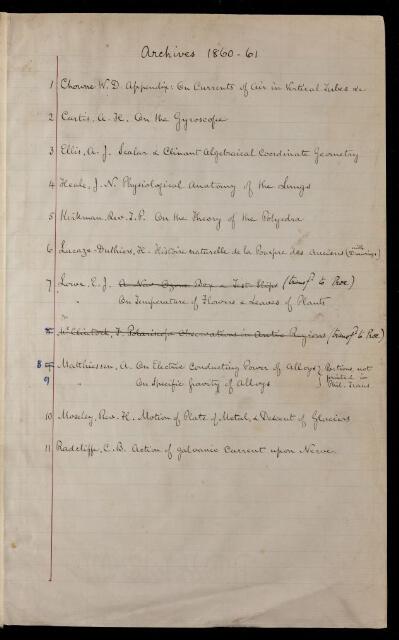 Archives 1860-61
1 Chowne W. D. Appendix: On Currents of Air in Vertical Tubes &c
2 Curtis, A. H. On the Gyroscope
3 Ellis, A. J. Scalar & Clinant Algebraical Coordinate Geometry
4 Heale, J. N. Physiological Anatomy of the Lungs
5 Kirkman, Rev. T. P. On the Theory of the Polyedra
6 Lacaze-Duthiers, H. Histoire naturelle de la Pourpre des Anciens (with Drawings)
7 Lowe, E. J. A New Ozone Box & Test Slips (transfd to Proc)
" On Temperature of Flowers & Leaves of Plants
8 McClintock, F. Polariscope Observations in Arctic Regions (transfd to Proc)
8 Matthiessen, A. On Electric Conducting Power of Alloys } Portions not
9 " On Specific gravity of Alloys } printed in Phil. Trans
10 Moseley, Rev. H. Motion of Plate of Metal, & Descent of Glaciers
11 Radcliffe, C. B. Action of galvanic Current upon Nerve